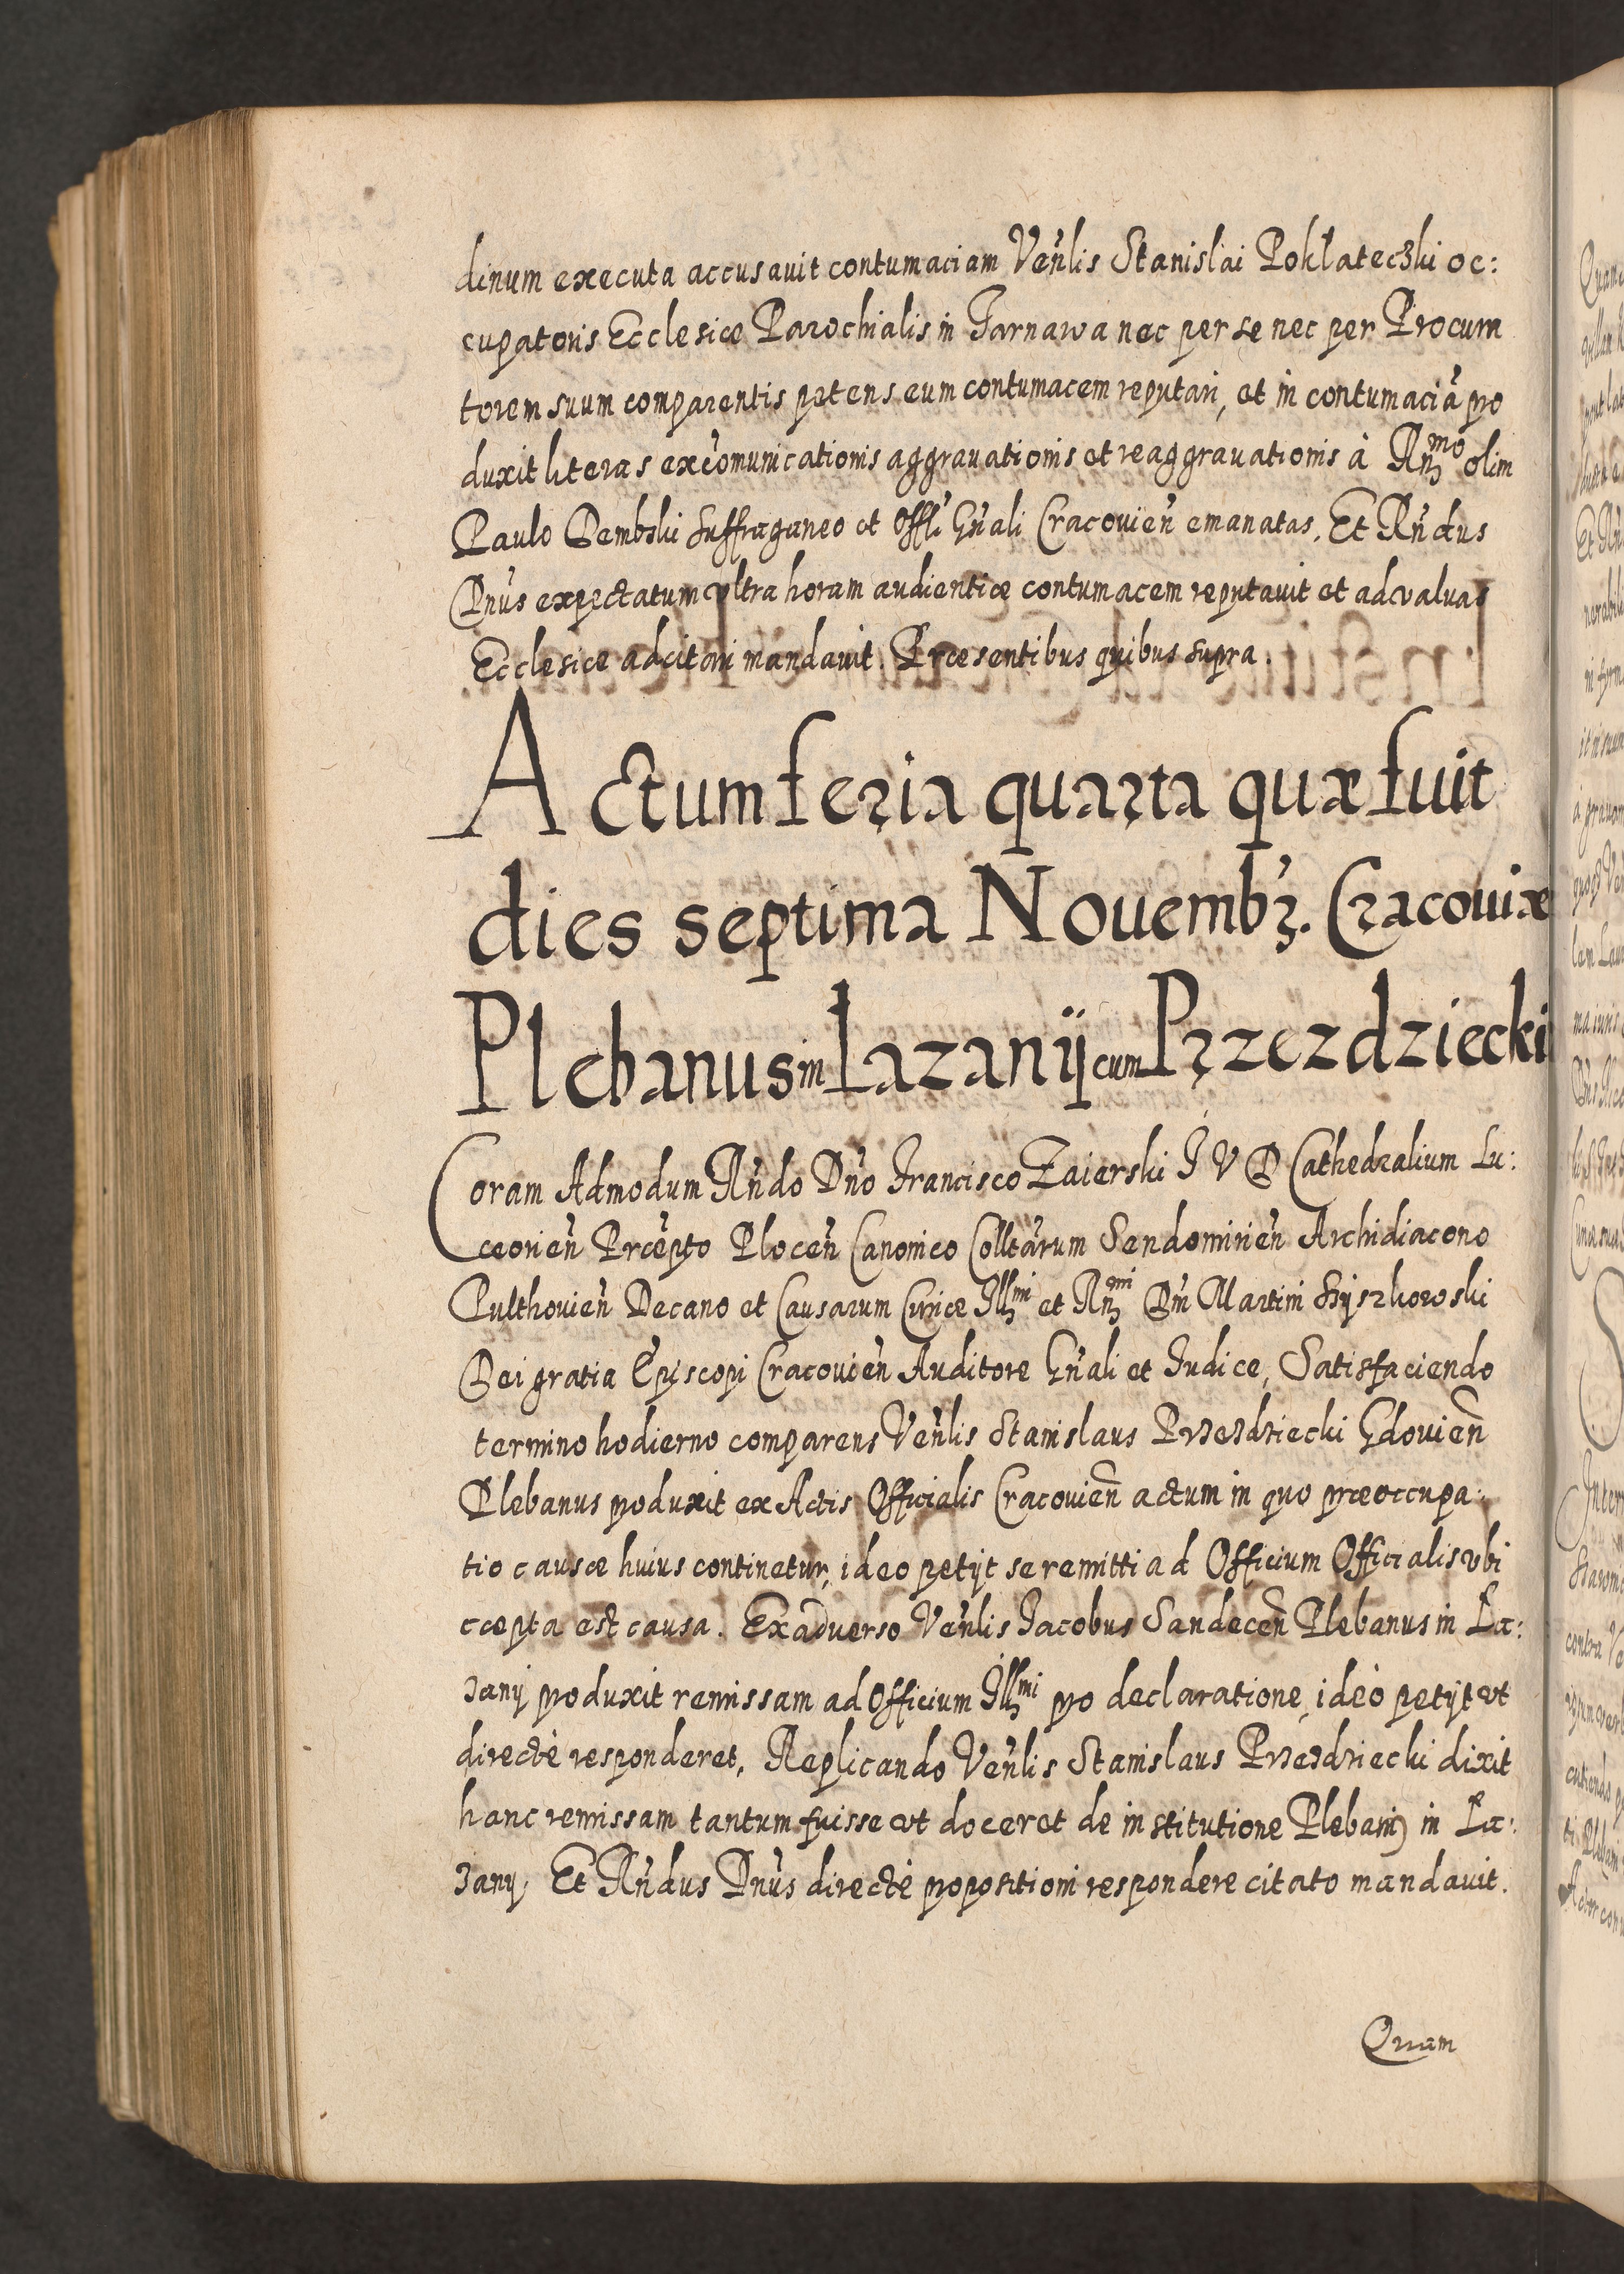 dinum executa accusauit contumaciam Ven̄lis Stanislai Pokłateczki oc:
cupatoris Ecclesiæ Parochialis in Tarnawa nec per se nec per Procura
torem suum comparentis petens eum contumacem reputari, et in contumaciā pro
duxit literas excōmunicationis aggrauationis et reaggrauationis à Rn̄ʒmo olim
Paulo Dembski suffraganeo et Offlī Gn̄ali Cracouien̄ emanatas. Et Rn̄dus
Dnūs expectatum vltra horam audientiæ contumacem reputauit et ad valuas
Ecclesiæ adcitari mandauit. Præsentibus quibus supra.
Actum feria quarta quæ fuit
dies septima Nouembr̄. Cracouiæ
Plebanus in Łazanij cum Przezdziecki
Coram Admodum Rn̄do Dn̄o Francisco Zaierski I V D Cathedralium Lu:
ceorien̄ Præpto Plocen̄ Canonico Colltārum Sendomirien̄ Archidiacono
Pulthouien̄ Decano et Causarum Curiæ Illʒmi et Rn̄ʒmi Dn̄i Martini Szyszkowski
Dei gratia Episcopi Cracouien̄ Auditore Gn̄ali et Iudice, Satisfaciendo
termino hodierno comparens Ven̄lis Stanislaus Przezdziecki Gdouien̄
Plebanus produxit ex Actis Officialis Cracouien̄ actum in quo præoccupa:
tio causæ huius continetur, ideo petijt se remitti ad Officium Officialis vbi
cæpta est causa. Ex aduerso Ven̄lis Iacobus Sandecen̄ Plebanus in Ła:
zanij produxit remissam ad Officium Illʒmi pro declaratione, ideò petijt vt
directè responderet, Replicando Ven̄lis Stanislaus Przezdziecki dixit
hanc remissam tantum fuisse vt doceret de institutione Plebani in Ła:
zanij, Et Rn̄dus Dnūs directè propositioni respondere citato mandauit.
Quam